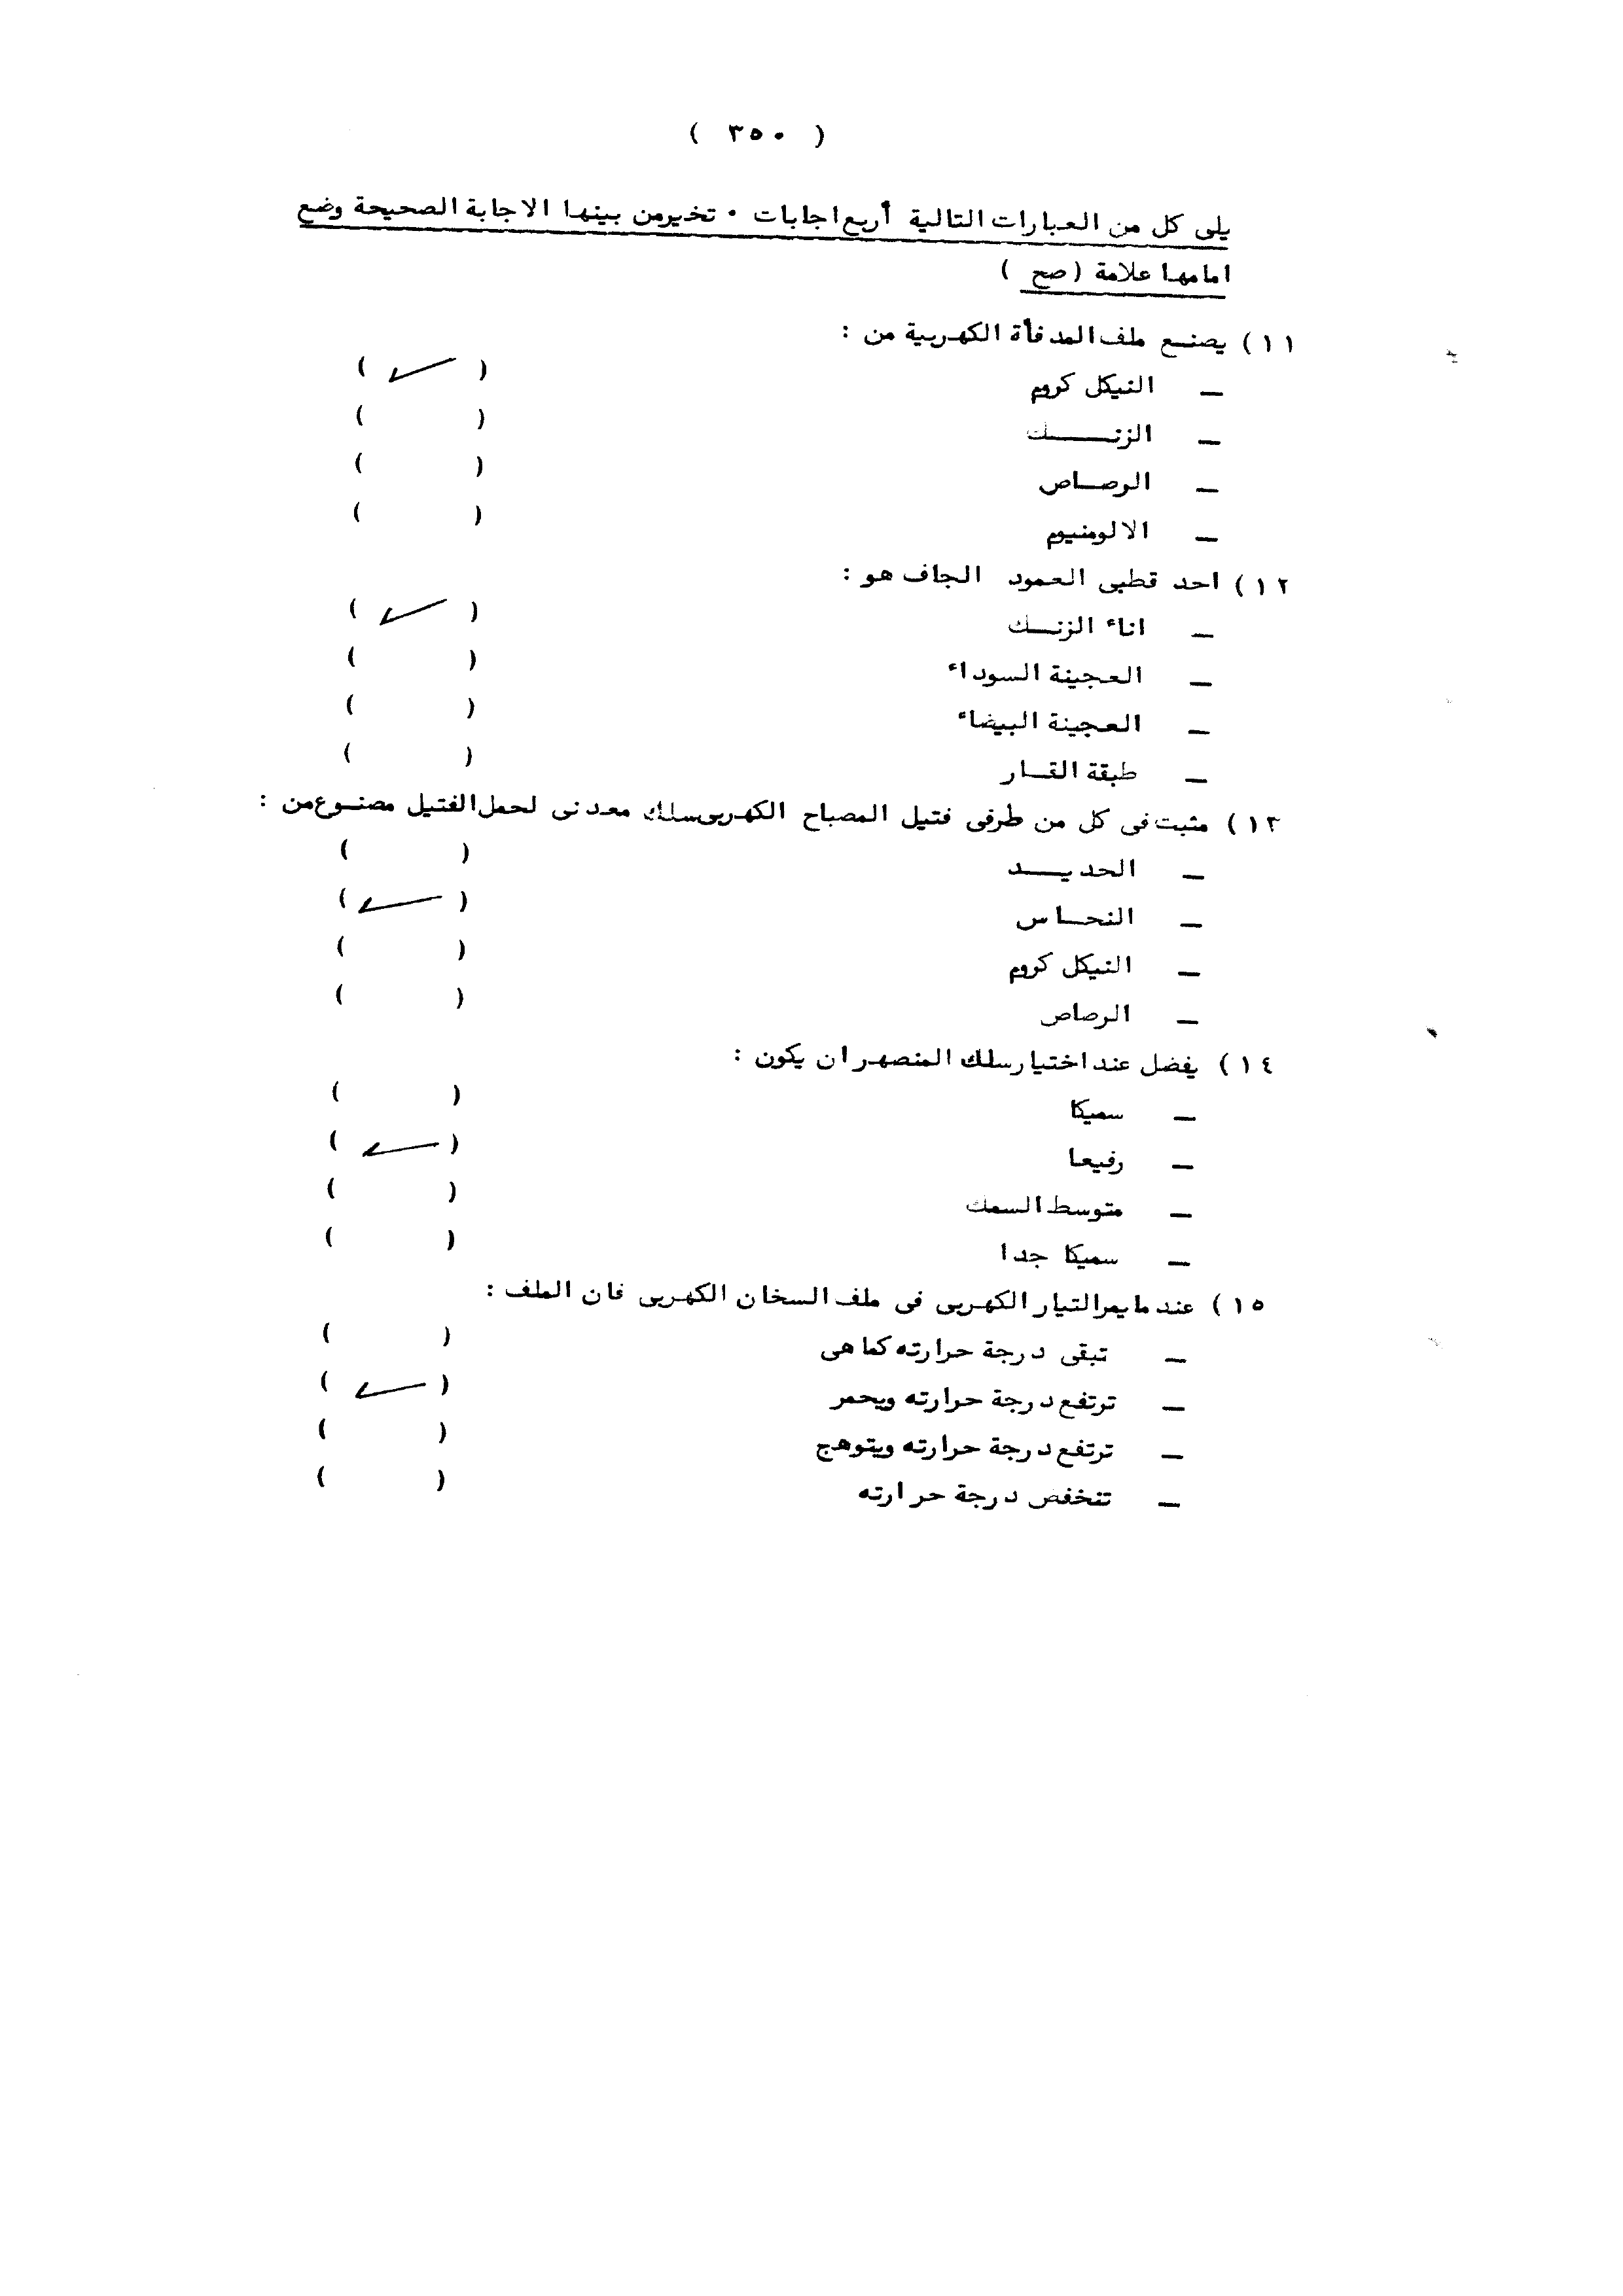 ( ٣٥٠ )
يلى كل من العبارات التالية أربع اجابات ٠ تخير من بينها الاجابة الصحيحة وضع
امامها علامة ( صح )
١١ ) يصنع ملف المدفأة الكهربية من :
— النيكل كروم ( ✓ )
— الزنك ( )
— الرصاص ( )
— الالومنيوم ( )
١٢ ) احد قطبى العمود الجاف هو :
— اناء الزنك ( ✓ )
— العجينة السوداء ( )
— العجينة البيضاء ( )
— طبقة القار ( )
١٣ ) مثبت فى كل من طرفى فتيل المصباح الكهربى سلك معدنى لحمل الفتيل مصنوع من :
— الحديد ( )
— النحاس ( ✓ )
— النيكل كروم ( )
— الرصاص ( )
١٤ ) يفضل عند اختيار سلك المنصهر ان يكون :
— سميكا ( )
— رفيعا ( ✓ )
— متوسط السمك ( )
— سميكا جدا ( )
١٥ ) عند ما يمر التيار الكهربى فى ملف السخان الكهربى فان الملف :
— تبقى درجة حرارته كما هى ( )
— ترتفع درجة حرارته ويحمر ( ✓ )
— ترتفع درجة حرارته ويتوهج ( )
— تنخفض درجة حرارته ( )